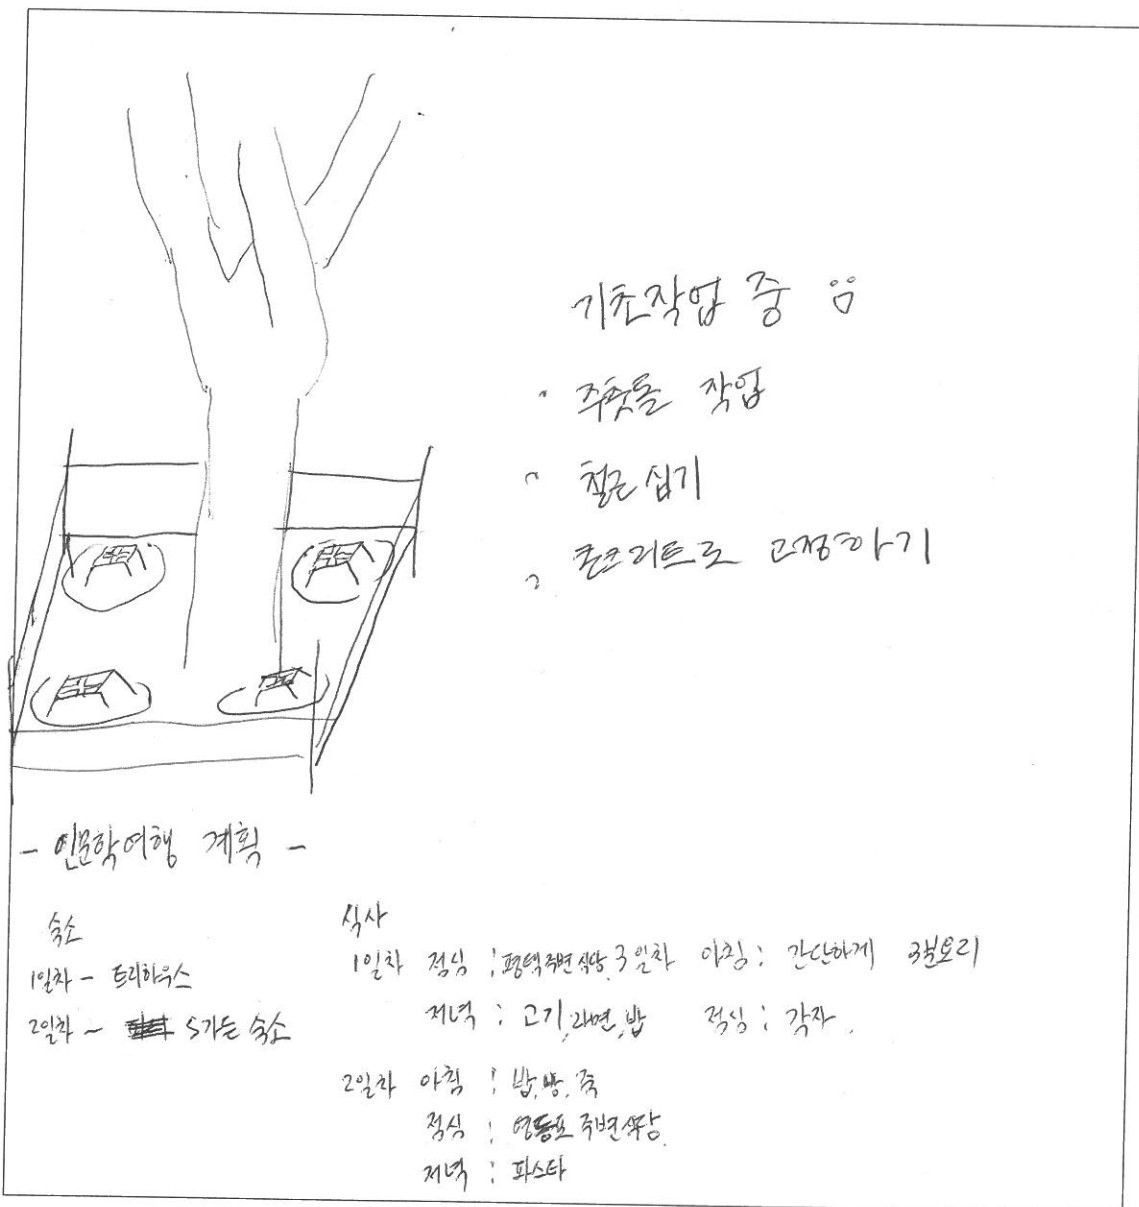 기초작업 중
주춧돌 작업
철근 심기
콘크리트로 고정하기
- 인문학여행 계획 -
숙소
1일차 - 트리하우스
2일차 - S가든 숙소
식사
1일차 점심 : 평택 주변 식당
저녁 : 고기, 라면, 밥
2일차 아침 : 밥, 빵, 죽
점심 : 영등포 주변 식당
저녁 : 파스타
3일차 아침 : 간단하게 3분요리
점심 : 각자